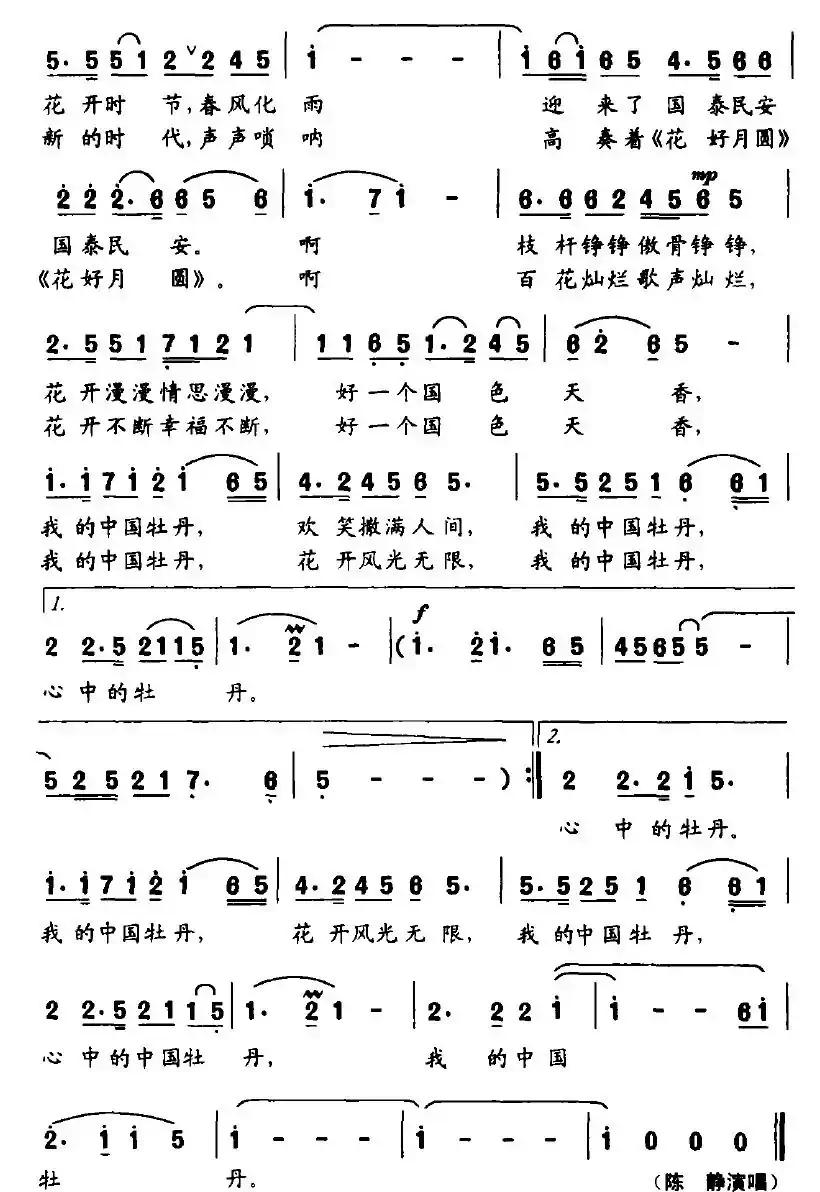 5· 5 5 1 2 ∨ 2 4 5 | 1 - - - | 1 6 1 6 5 4· 5 6 6 |
花 开时 节,春风化 雨 迎 来了 国 泰民安
新 的时 代,声声唢 呐 高 奏着《花 好月圆》
mp
2 2 2· 6 6 5 6 | 1· 7 1 - | 6· 6 6 2 4 5 6 5 |
国泰民 安。 啊 枝 杆铮铮傲骨铮铮,
《花好月 圆》。 啊 百 花灿烂歌声灿烂,
2· 5 5 1 7 1 2 1 | 1 1 6 5 1· 2 4 5 | 6 2 6 5 - |
花 开漫漫情思漫漫, 好一个国 色 天 香,
花 开不断幸福不断, 好一个国 色 天 香,
1· 1 7 1 2 1 6 5 | 4· 2 4 5 6 5· | 5· 5 2 5 1 6 6 1 |
我 的中国牡丹, 欢 笑撒满人间, 我 的中国牡丹,
我 的中国牡丹, 花 开风光无限, 我 的中国牡丹,
1.
f
2 2· 5 2 1 1 5 | 1· 2 1 - | (1· 2 1· 6 5 | 4 5 6 5 5 5 - |
心 中的牡 丹。
2.
5 2 5 2 1 7· 6 | 5 - - - ) :‖ 2 2· 2 1 5· |
心 中 的牡丹。
1· 1 7 1 2 1 6 5 | 4· 2 4 5 6 5· | 5· 5 2 5 1 6 6 1 |
我 的中国牡丹, 花 开风光无 限, 我 的中国牡 丹,
2 2· 5 2 1 1 5 | 1· 2 1 - | 2· 2 2 1 | 1 - - 6 1 |
心 中的中国牡 丹, 我 的中国
2· 1 1 5 | 1 - - - | 1 - - - | 1 0 0 0 ‖
牡 丹。 (陈 静演唱)